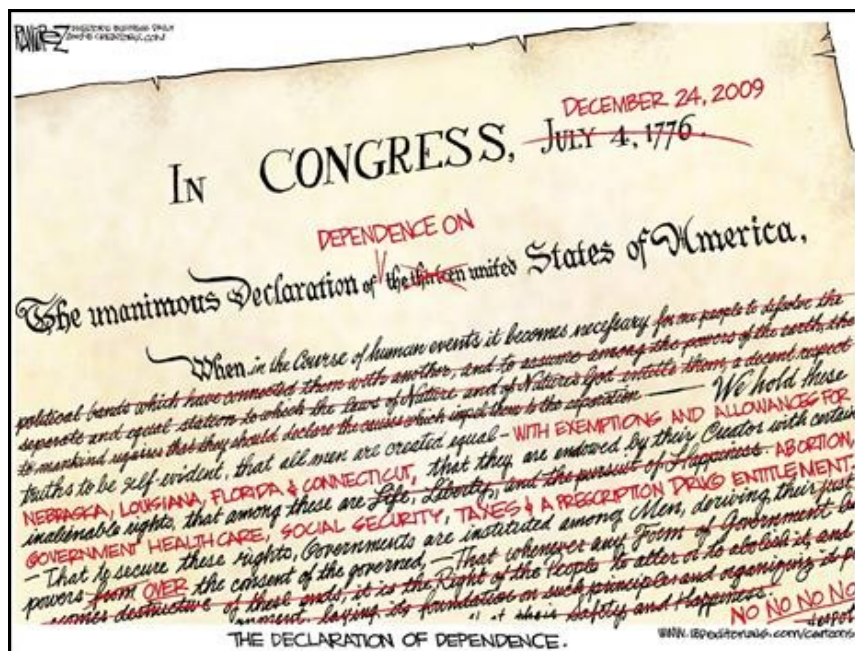 RAMIREZ
INVESTOR'S BUSINESS DAILY
DECEMBER 24, 2009
IN CONGRESS, JULY 4, 1776.
DEPENDENCE ON
The unanimous Declaration of the thirteen united States of America,
When in the Course of human events it becomes neceſsary for one people to diſsolve the
political bands which have connected them with another, and to assume among the powers of the earth, the
separate and equal station to which the laws of Nature and of Nature's God entitle them, a decent respect
to mankind requires that they should declare the causes which impel them to the separation We hold these
truths to be self-evident, that all men are created equal - WITH EXEMPTIONS AND ALLOWANCES FOR
NEBRASKA, LOUISIANA, FLORIDA & CONNECTICUT, that they are endowed by their Creator with certain
inalienable rights, that among these are Life, Liberty, and the pursuit of Happiness. ABORTION,
GOVERNMENT HEALTHCARE, SOCIAL SECURITY, TAXES & A PRESCRIPTION DRUG ENTITLEMENT.
- That to secure these rights, Governments are instituted among Men, deriving their just
powers from OVER the consent of the governed, - That whenever any Form of Government
destructive of these ends, it is the Right of the People to alter or to abolish it, and
laying its foundation on such principles and organizing its
their Safety and Happiness.
NO NO NO NO
THE DECLARATION OF DEPENDENCE.
www.IBDeditorials.com/cartoons